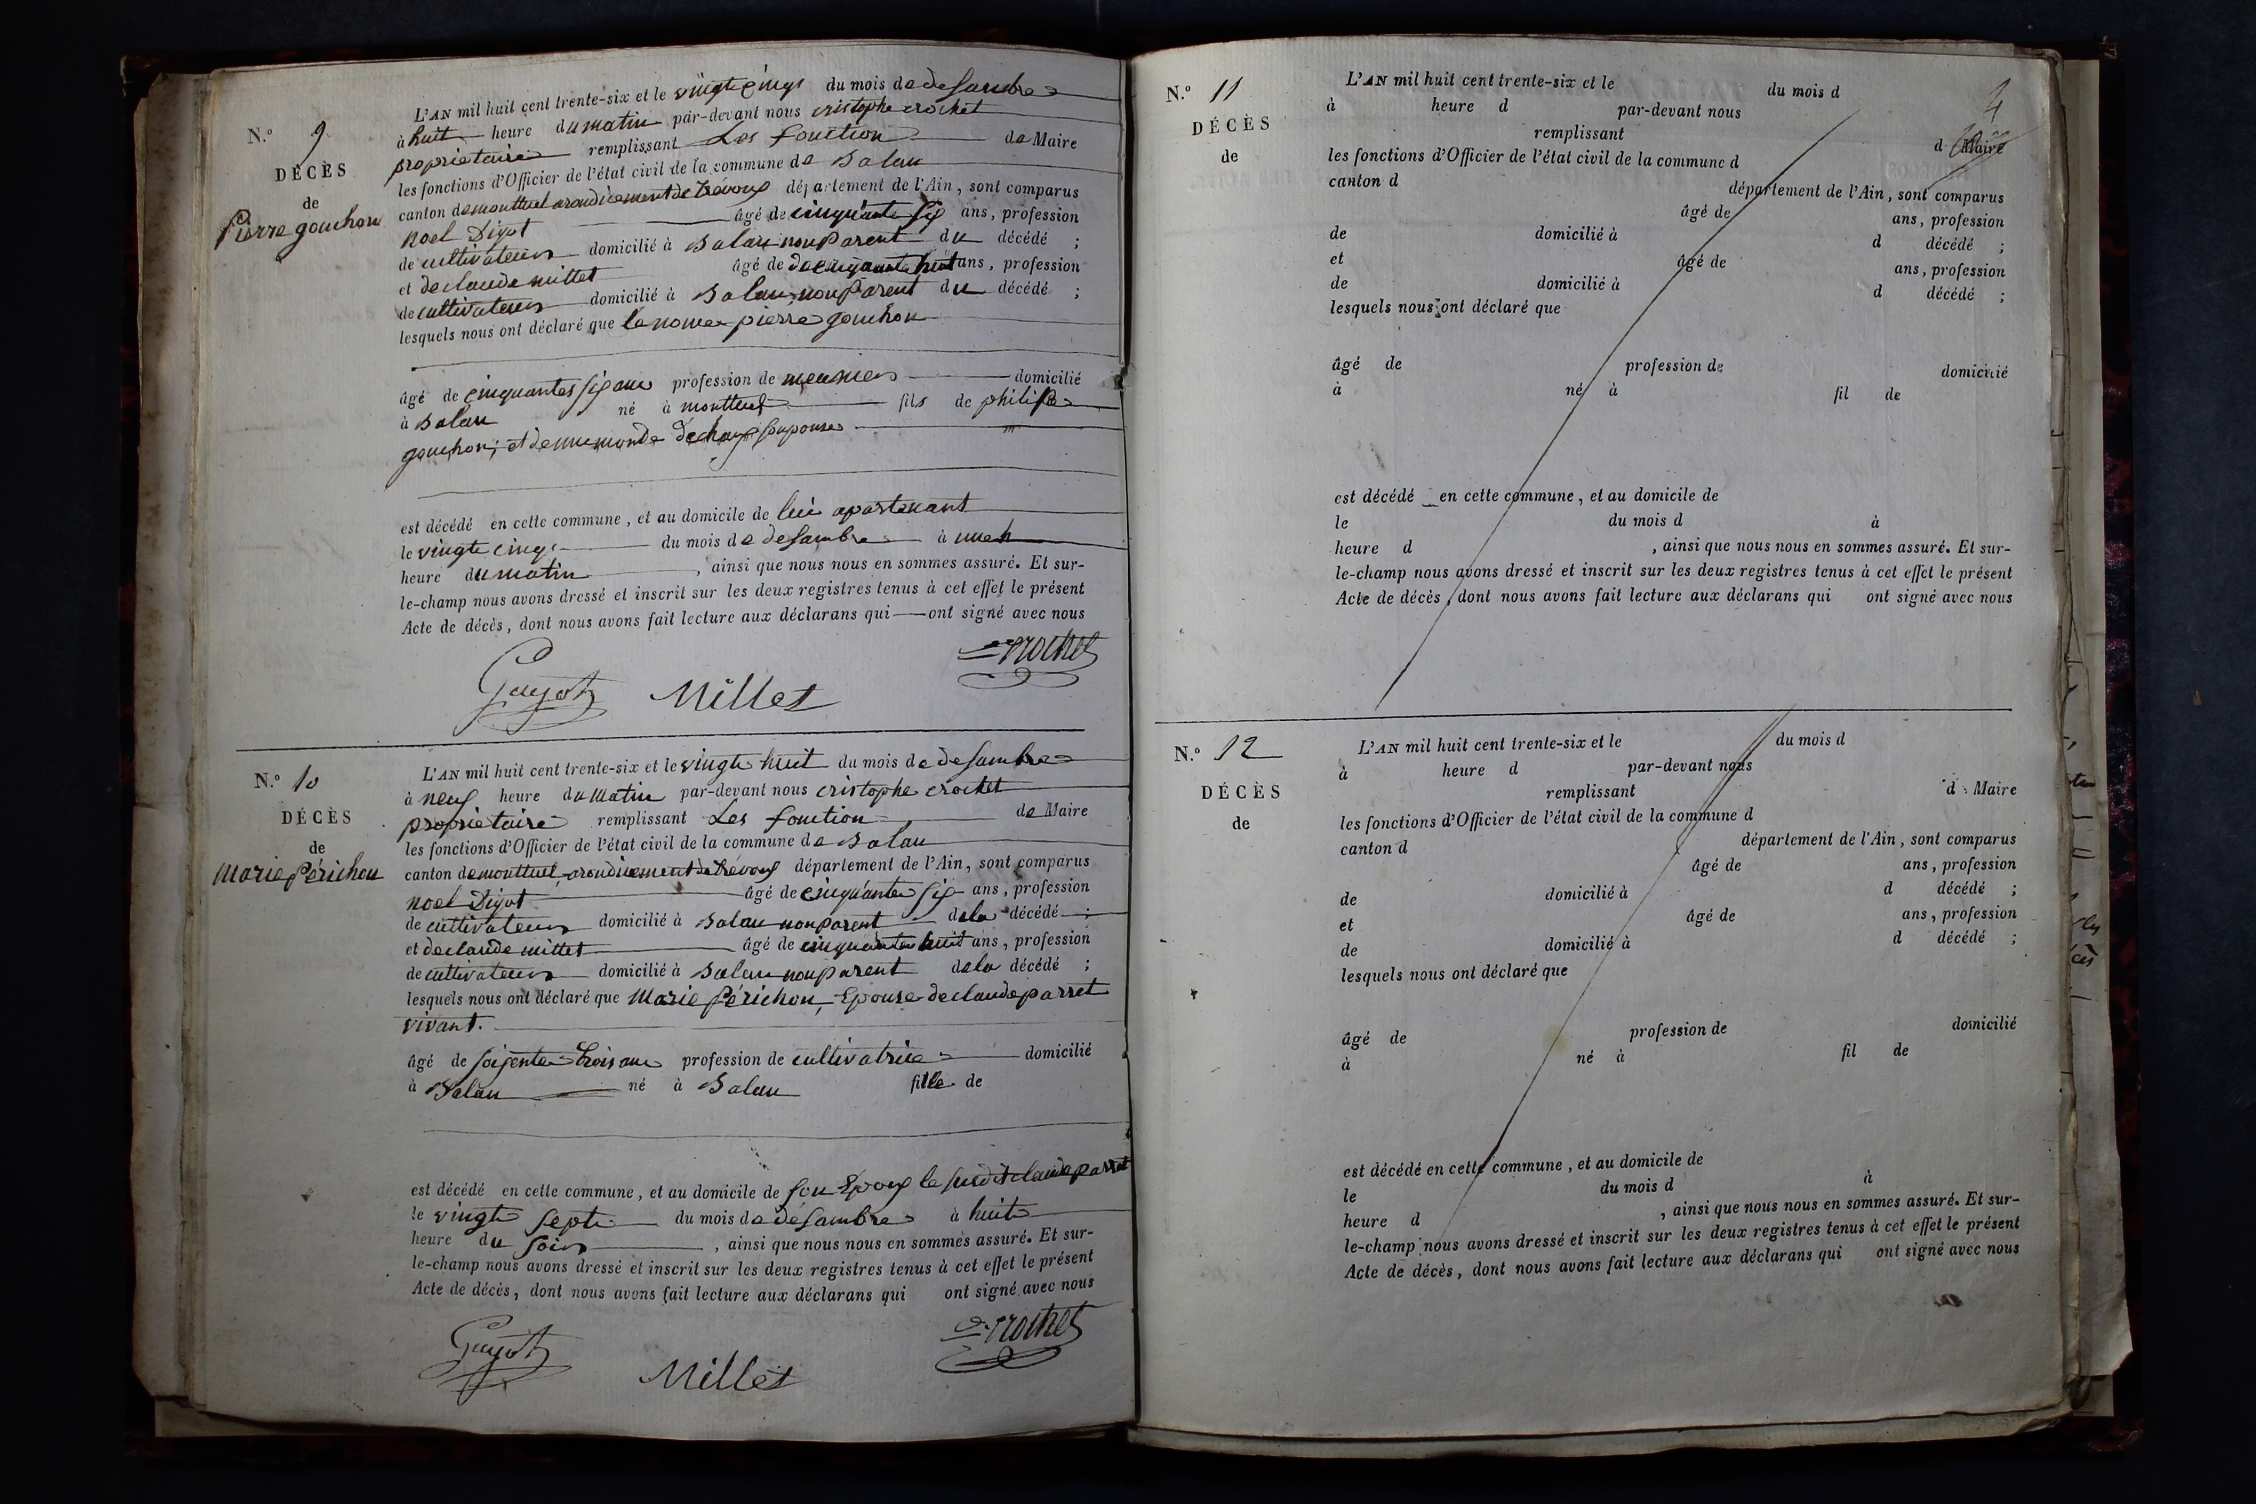 N.º 9
DÉCÈS
de
Pierre gouchon
L'AN mil huit cent trente-six et le vingte cinqs du mois de desambre
à huit heure du matin par-devant nous cristophe crochet
proprietaire remplissant Les fonction de Maire
les fonctions d'Officier de l'état civil de la commune de Balan
canton de montluel arondicement de trévoux département de l'Ain, sont comparus
noel Digot âgé de cinquante six ans, profession
de cultivateur domicilié à Balan non parent du décédé ;
et de claude millet âgé de de cinquante huit ans, profession
de cultivateur domicilié à Balan, non parent du décédé ;
lesquels nous ont déclaré que le nome pierre gouchon
âgé de cinquantes six ans profession de meunier domicilié
à Balan né à montluel fils de philipe
gouchon; et de
est décédé en cette commune, et au domicile de lui apartenant
le vingte cinqs du mois de desambre à une h
heure du matin, ainsi que nous nous en sommes assuré. Et sur-
le-champ nous avons dressé et inscrit sur les deux registres tenus à cet effet le présent
Acte de décès, dont nous avons fait lecture aux déclarans qui ont signé avec nous
crochet
Guyot Millet
N.º 10
DÉCÈS
de
Marie Périchon
L'AN mil huit cent trente-six et le vingte huit du mois de desambre
à neuf heure du matin par-devant nous cristophe crochet
proprietaire remplissant Les fonction de Maire
les fonctions d'Officier de l'état civil de la commune de Balan
canton de montluel arondicement de trévoux département de l'Ain, sont comparus
noel Digot âgé de cinquante six ans, profession
de cultivateur domicilié à Balan non parent de la décédé ;
et de claude millet âgé de cinquante huit ans, profession
de cultivateur domicilié à Balan non parent de la décédé ;
lesquels nous ont déclaré que Marie Périchon, Epouse de claude parret
vivant.
âgé de soixente trois ans profession de cultivatrice domicilié
à Balan né à Balan fille de
est décédé en cette commune, et au domicile de son Epoux le susdit claude parret
le vingte septe du mois de désambre à huite
heure du soir, ainsi que nous nous en sommes assuré. Et sur-
le-champ nous avons dressé et inscrit sur les deux registres tenus à cet effet le présent
Acte de décès, dont nous avons fait lecture aux déclarans qui ont signé avec nous
crochet
Guyot Millet
N.º 11
DÉCÈS
de
L'AN mil huit cent trente-six et le du mois d
à heure d par-devant nous
remplissant d Maire
les fonctions d'Officier de l'état civil de la commune d
canton d département de l'Ain, sont comparus
âgé de ans, profession
de domicilié à d décédé ;
et âgé de ans, profession
de domicilié à d décédé ;
lesquels nous ont déclaré que
âgé de profession de domicilié
à né à fil de
est décédé en cette commune, et au domicile de
le du mois d à
heure d , ainsi que nous nous en sommes assuré. Et sur-
le-champ nous avons dressé et inscrit sur les deux registres tenus à cet effet le présent
Acte de décès, dont nous avons fait lecture aux déclarans qui ont signé avec nous
N.º 12
DÉCÈS
de
L'AN mil huit cent trente-six et le du mois d
à heure d par-devant nous
remplissant d Maire
les fonctions d'Officier de l'état civil de la commune d
canton d département de l'Ain, sont comparus
âgé de ans, profession
de domicilié à d décédé ;
et âgé de ans, profession
de domicilié à d décédé ;
lesquels nous ont déclaré que
âgé de profession de domicilié
à né à fil de
est décédé en cette commune, et au domicile de
le du mois d à
heure d , ainsi que nous nous en sommes assuré. Et sur-
le-champ nous avons dressé et inscrit sur les deux registres tenus à cet effet le présent
Acte de décès, dont nous avons fait lecture aux déclarans qui ont signé avec nous